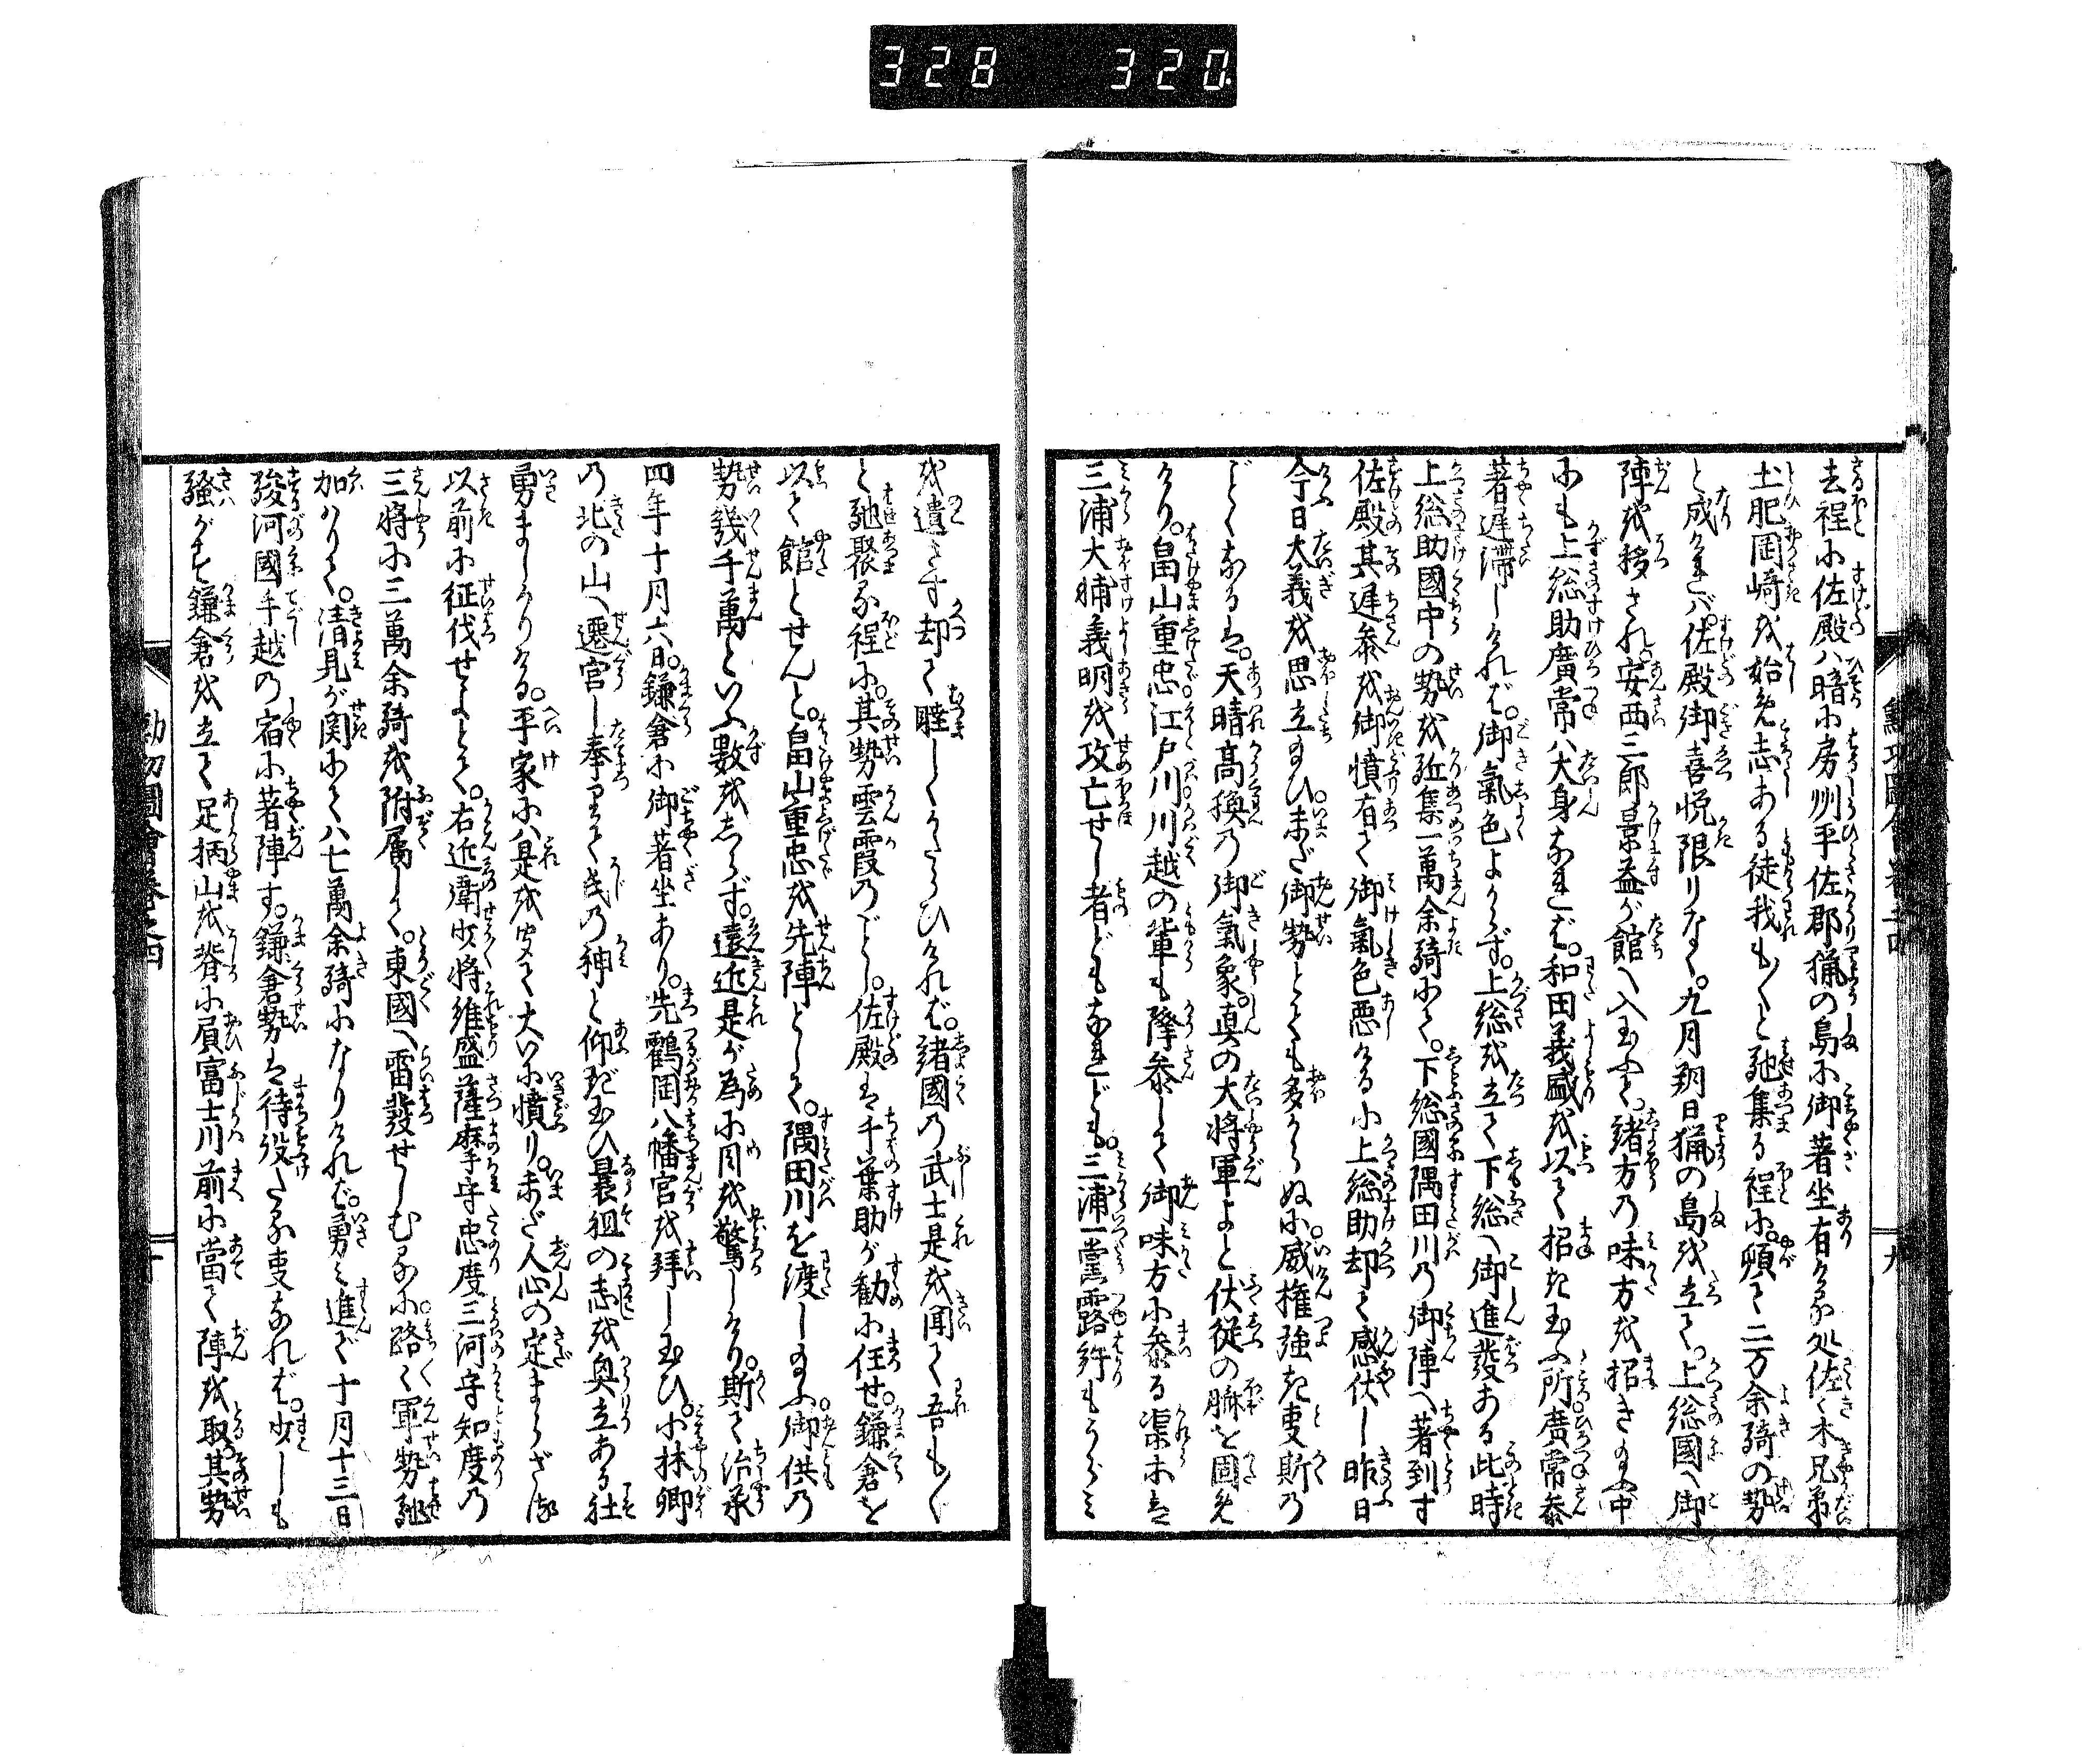 328 320
去程小佐殿ハ暗小房州平佐郡猟の島小御著坐有ける処佐々木兄弟
土肥岡崎を始め志ある徒我も〳〵と馳集る程小頓て二万余騎の勢
と成けれバ佐殿御喜悦限りなく。九月朔日猟の島を立て。上総國へ御
陣を移され。安西三郎景益が館へ入玉ふて。諸方の味方を招き給ふ中
にも上総助廣常ハ大身なれば。和田義盛を以て招き玉ふ所。廣常参
著遅滞しければ。御氣色よからず。上総を立て下総へ御進發ある此時
上総助國中の勢を驅集一萬余騎にて。下総國隅田川の御陣へ著到す
佐殿其遅参を御憤有て御氣色悪ける小上総助却て感伏し昨日
今日大義を思立給ひ。未だ御勢とても多からぬ小。威権強き事斯の
ごとくなるは。天晴高穏の御氣象。真の大将軍よと伏従の臍を固め
けり。畠山重忠江戸川川越の輩も降参して御味方小参る渠等は
三浦大輔義明を攻亡せし者どもなれども。三浦一黨露許もうらミ
を遺さず却て睦しくかたらひければ。諸國の武士是を聞て吾も〳〵
と馳聚る程小。其勢雲霞のごとし。佐殿は千葉助が勧小任せ。鎌倉を
以て館とせんと。畠山重忠を先陣として。隅田川を渡し給ふ。御供の
勢幾千萬といふ數をしらず。遠近是が為小目を驚しけり。斯て治承
四年十月六日。鎌倉小御著坐あり。先鶴岡八幡宮を拝し玉ひ。小林郷
の北の山へ遷宮し奉りて氏の神と仰ぎ玉ひ曩祖の志を興立ある社
勇ましかりける。平家小ハ是を聞て大い小憤り。未だ人心の定まらざる
以前小征伐せよとて。右近衛少将維盛薩摩守忠度三河守知度の
三将小三萬余騎を附属して。東國へ雷發せしむる小。路々軍勢馳
加ハりて。清見が関にてハ七萬余騎小なりければ。勇ミ進ンで十月十三日
駿河國手越の宿小著陣す。鎌倉勢は待設たる事なれば。少しも
騒がず鎌倉を立て足柄山を背小屓富士川前小當て陣を取其勢